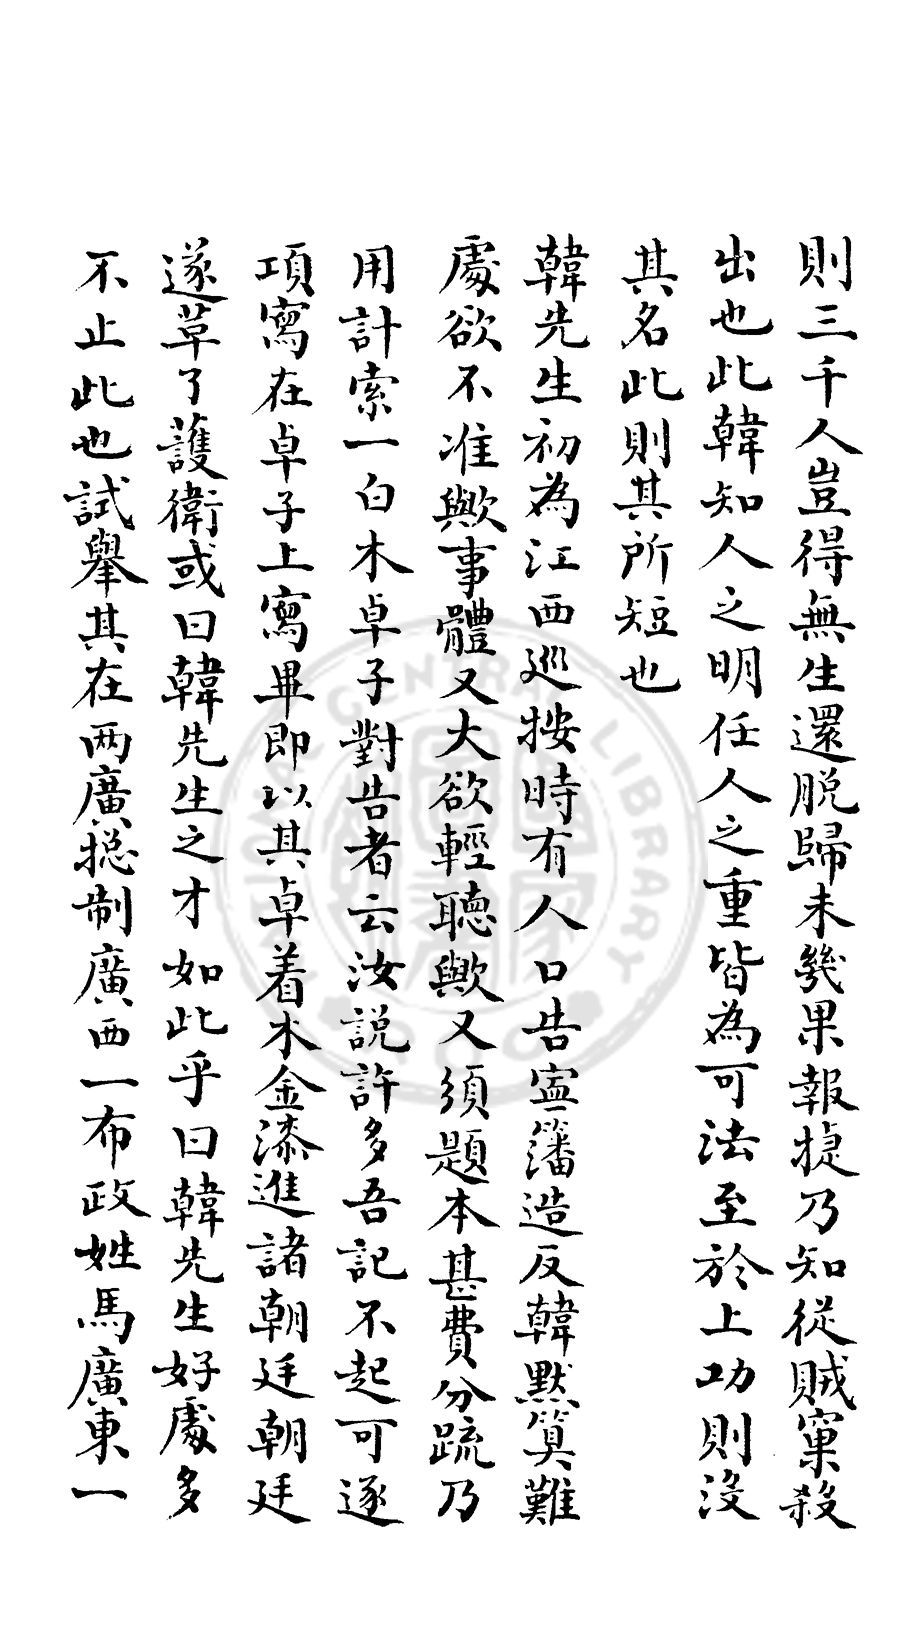 則三千人豈得無生還脫歸未幾果報捷乃知從賊窠殺
出也此韓知人之明任人之重皆為可法至於上功則沒
其名此則其所短也
韓先生初為江西巡按時有人口告寧藩造反韓默筭難
處欲不准歟事體又大欲輕聽歟又須題本甚費分疏乃
用計索一白木卓子對告者云汝説許多吾記不起可逐
項寫在卓子上寫畢即以其卓着木金漆進諸朝廷朝廷
遂草了護衛或曰韓先生之才如此乎曰韓先生好處多
不止此也試舉其在两廣捴制廣西一布政姓馬廣東一
NATIONAL CENTRAL LIBRARY